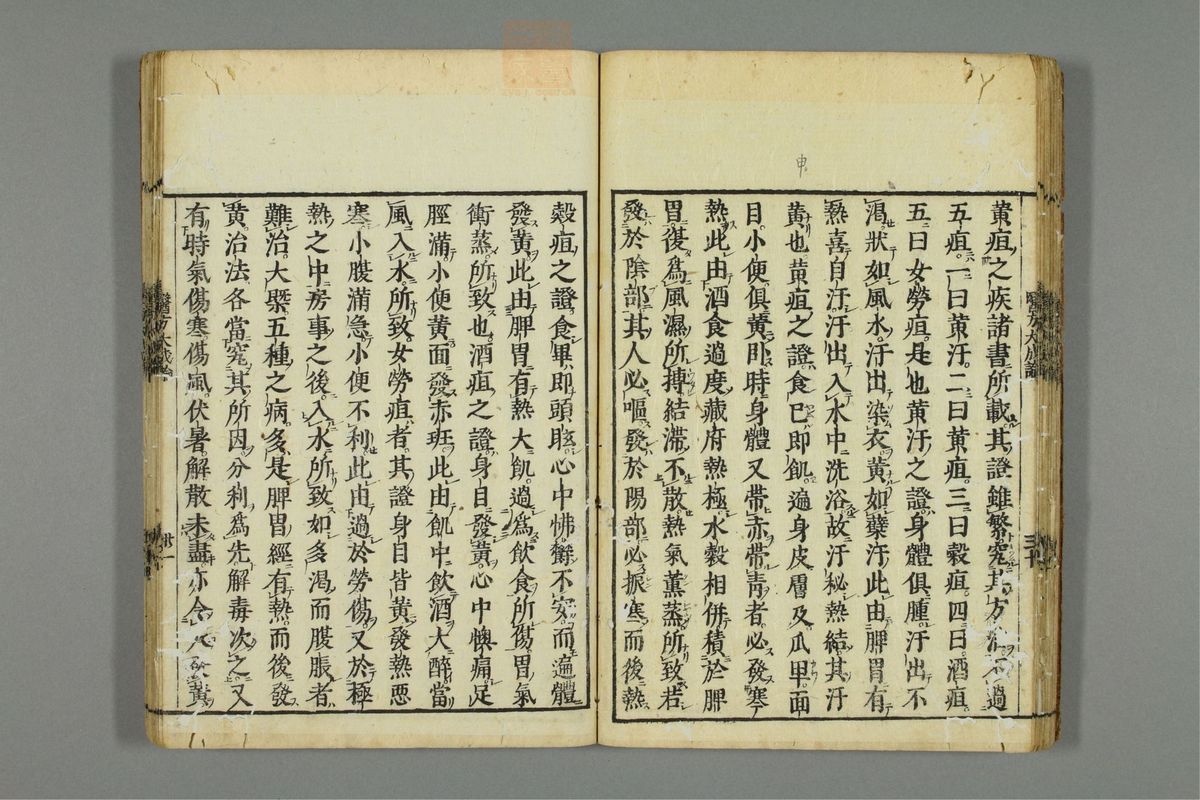 黄疸之疾諸書所載其證雖繁究其方論不過
五疸一曰黄汗二曰黄疸三曰穀疸四曰酒疸
五曰女勞疸是也黄汗之證身體俱腫汗出不
渇狀如風水汗出染衣黄如蘗汁此由脾胃有
熱喜自汗汗出入水中洗浴故汗秘熱結其汗
黄也黄疸之證食已即飢遍身皮膚及瓜甲面
目小便俱黄卧時身體又帶赤帶靑者必發寒
熱此由酒食過度藏府熱極水穀相併積於脾
胃復爲風濕所搏結滯不散熱氣薰蒸所致若
發於陰部其人必嘔發於陽部必振寒而後熱
穀疸之證食畢即頭眩心中怫欝不安而遍體
發黄此由脾胃有熱大飢過爲飲食所傷胃氣
衝蒸所致也酒疸之證身目發黄心中懊痛足
脛滿小便黄面發赤班此由飢中飲酒大醉當
風入水所致女勞疸者其證身目皆黄發熱悪
寒小腹滿急小便不利此由過於勞傷又於極
熱之中房事之後入水所致如多渇而腹脹者
難治大槩五種之病多是脾胃經有熱而後發
黄治法各當究其所因分利爲先解毒次之又
有時氣傷寒傷風伏暑解散未盡亦令人發黄
申